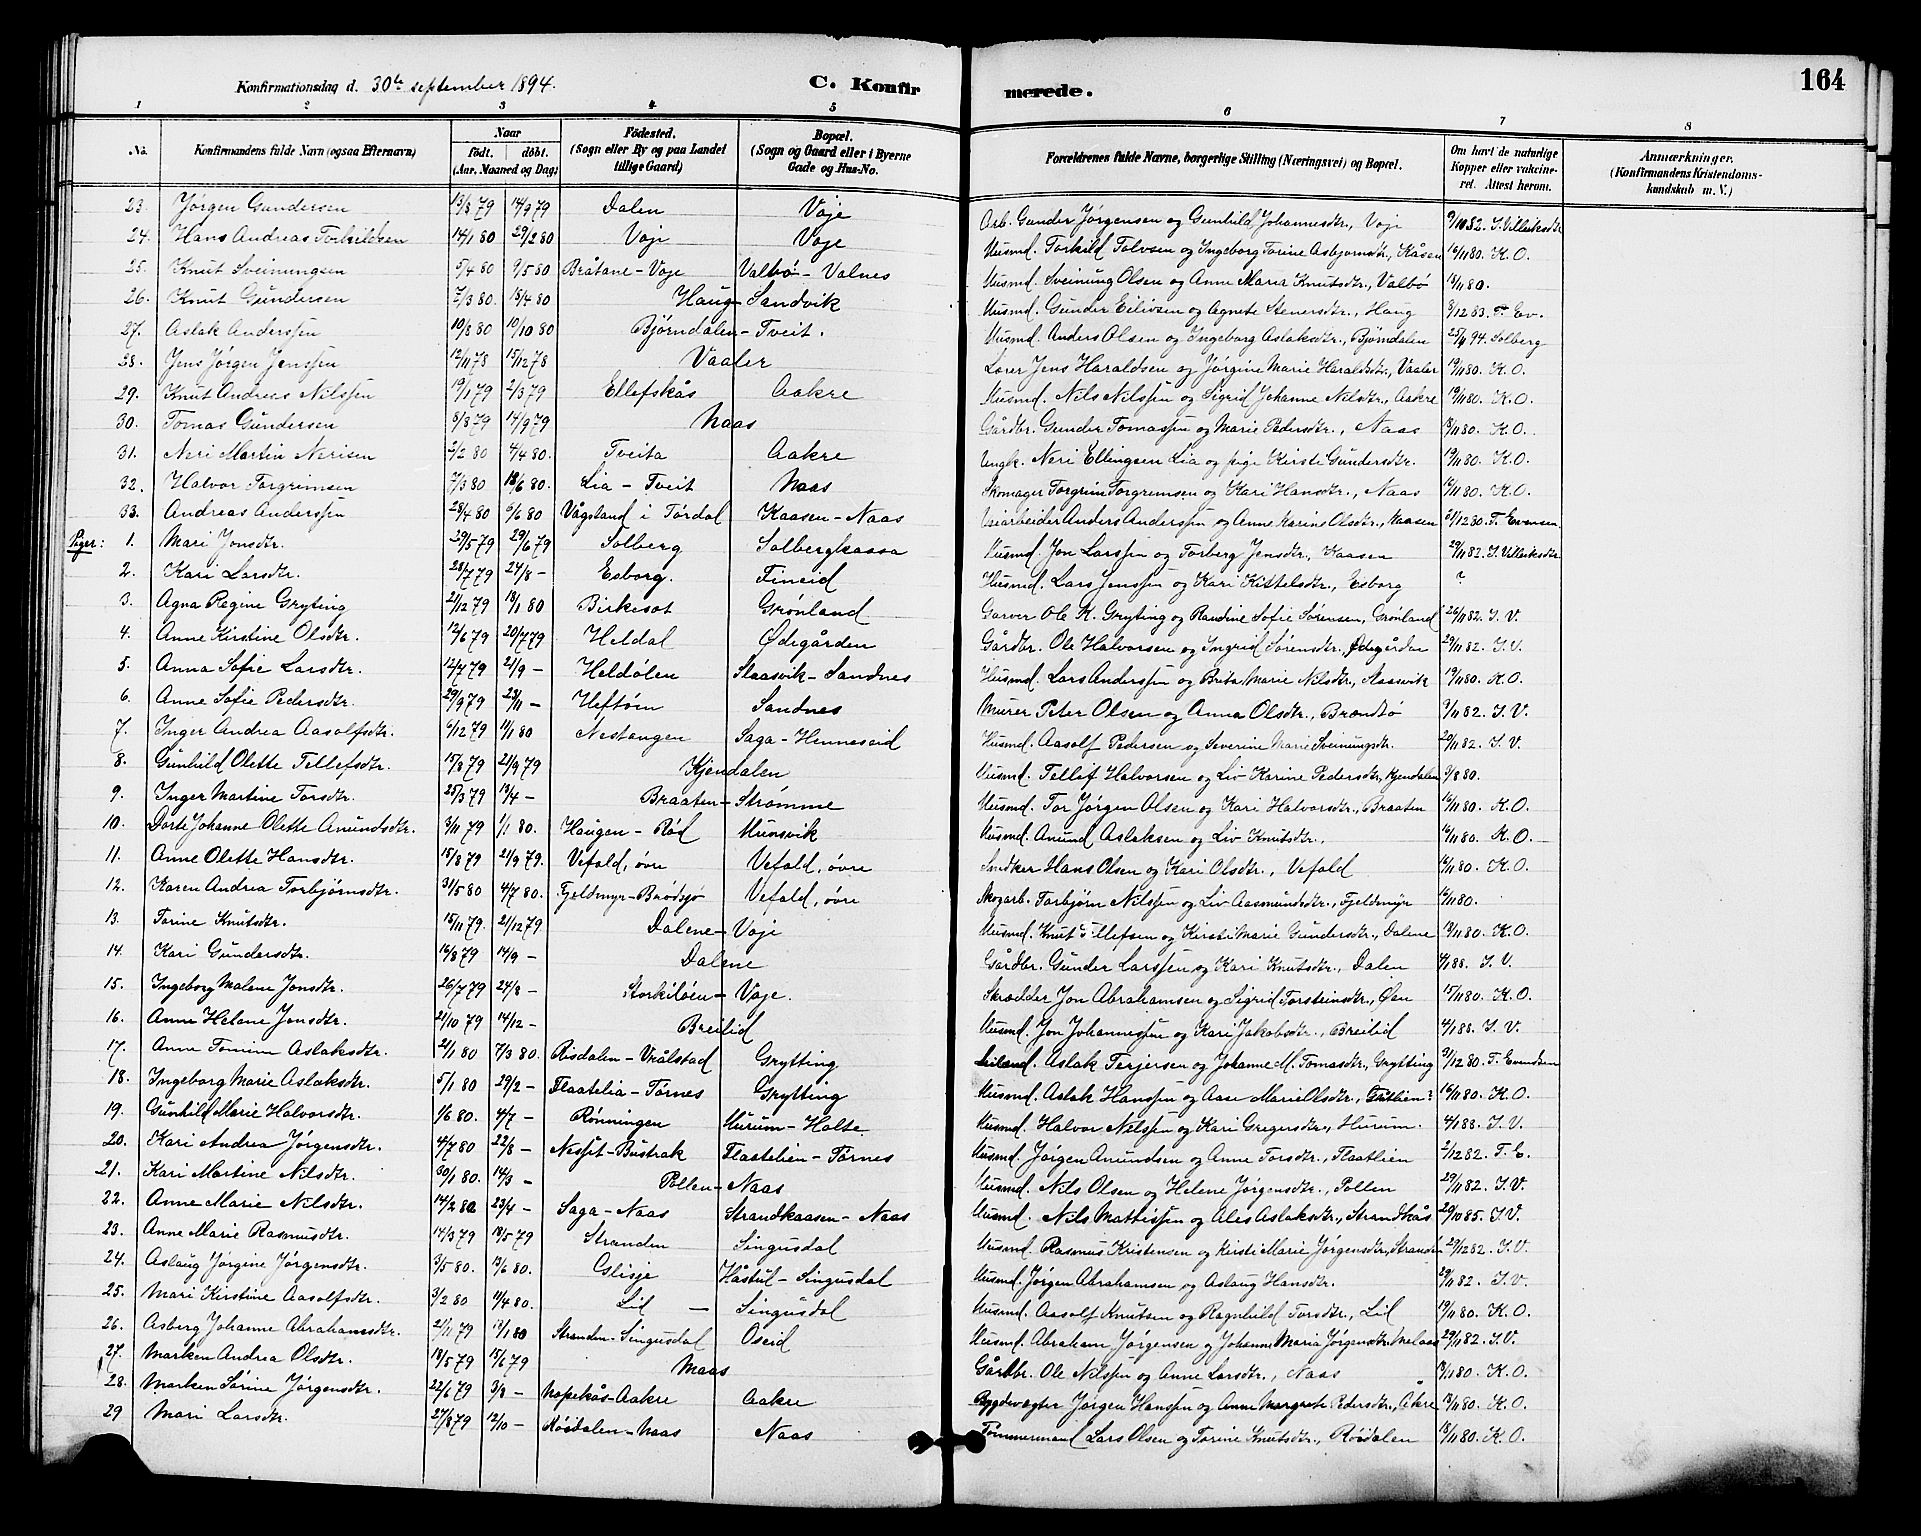 Konfirmationsdag d. 30te september 1894.
C. Konfirmerede.
164
1 2 3 4 5 6 7 8
No. Konfirmandens fulde Navn (ogsaa Efternavn) Naar født. døbt. (Aar, Maaned og Dag) Fødested. (Sogn eller By og paa Landet tillige Gaard) Bopæl. (Sogn og Gaard eller i Byerne Gade og Hus-No. Forældrenes fulde Navne, borgerlige Stilling (Næringsvei) og Bopæl. Om havt de naturlige Kopper eller vakcineret. Attest herom. Anmærkninger. (Konfirmandens Kristendomskundskab m. V.)
23. Jørgen Gundersen 13/8 79 14/9 79 Dalen Voje Arb. Gunder Jørgensen og Gunhild Johannesdtr., Voje 9/10 82. I. Villiksdtr
24. Hans Andreas Torkildsen 14/1 80 29/2 80 Voje Voje Husmd. Torkild Tolvsen og Ingeborg Torine Asbjørnsdtr., Kåsen 16/11 80. K. O.
25. Knut Sveinungsen 5/4 80 9/5 80 Bråtane-Voje Valbö-Valnes Husmd. Sveinung Olsen og Anne Maria Knutsdtr., Valbö 15/11 80.
26. Knut Gundersen 7/3 80. 18/4 80 Haug-Sandvik Husmd. Gunder Eilivsen og Agnete Stenersdtr., Haug 8/12 83. Ev.
27. Aslak Anderssen 10/8 80 10/10 80 Bjørndalen-Tveit. Husmd. Anders Olsen og Ingeborg Aslaksdtr., Bjørndalen 25/4 94. Solberg
28. Jens Jørgen Jenssen 12/11 78 15/12 78 Vaaler Lærer Jens Haraldsen og Jørgine Marie Haraldsdtr., Vaaler 19/11 80. K. O.
29. Knut Andreas Nilssen 19/1 79 2/3 79 Ellefskås Aakre Husmd. Nils Nilssen og Sigrid Johanne Nilsdtr., Aakre 19/11 80. K. O.
30. Tomas Gundersen 8/8 79 14/9 79 Naas Gårdbr. Gunder Tomassen og Marie Pedersdtr., Naas 18/11 80. K. O.
31. Neri Martin Nerisen 2/2 80 4/4 80. Tveita Aakre Ungk. Neri Ellingsen Lia og pige Kirsti Gundersdtr. 19/11 80. K. O.
32. Halvor Torgrimsen 7/3 80 18/6 80. Lia-Tveit Naas Skomager Torgrim Torgrimsen og Kari Hansdtr., Naas 16/11 80. K. O.
33. Andreas Anderssen 28/4 80 6/6 80 Vågsland i Tördal Kaasen-Naas Veiarbeider Anders Anderssen og Anne Karine Olsdtr., Kaasen 21/12 80. T. Evensen
Piger: 1. Mari Jonsdtr. 29/5 79 29/6 79 Solberg Solbergkaasa Husmd. Jon Larssen og Torberg Jensdtr., Kaasen 29/11 82. I. Villiksdtr
2. Kari Larsdtr. 28/7 79 24/8 - Esborg. Fineid Husmd. Lars Jenssen og Kari Kittelsdtr., Esborg ?
3. Agna Regine Gryting 21/12 79 18/1 80 Birkesot Grønland Garver Ole K. Gryting og Randine Sofie Sørensen, Grønland 26/11 82. I. V.
4. Anne Kirstine Olsdtr. 12/6 79 20/7 79 Heldal Ødegården Gårdbr. Ole Halvorsen og Ingrid Sørensdtr., Ødegården 29/11 82. I. V.
5. Anna Sofie Larsdtr. 12/7 79 21/9 - Heldølen Staasvik-Sandnes Husmd. Lars Anderssen og Brita Marie Nilsdtr., Naasvik 19/11 80. K. O.
6. Anne Sofie Pedersdtr. 29/9 79 23/11 - Heftøen Sandnes Murer Peter Olsen og Anna Olsdtr., Brændbö 9/11 82. I. V.
7. Inger Andrea Aasolfsdtr. 6/12 79 11/1 80 Nestangen Saga-Henneseid Husmd. Aasolf Pedersen og Severine Marie Sveinungsdtr. 29/11 82. I. V.
8. Gunhild Olette Tellefsdtr. 15/8 79 21/9 79 Kjendalen Husmd. Tellef Halvorsen og Liv Karine Pedersdtr., Kjendalen 9/8 80.
9. Inger Martine Torsdtr. 25/3 79 13/4 - Braaten-Strømme Husmd. Tor Jørgen Olsen og Kari Halvorsdtr., Braaten 16/11 80. K. O.
10. Dorte Johanne Olette Anundsdtr. 3/11 79 1/1 80. Haugen-Rød Hunsvik Husmd. Anund Aslaksen og Liv Knutsdtr., 16/11 80. K. O.
11. Anne Olette Hansdtr. 15/8 79 21/9 79. Vefald, övre Vefald, övre Snedker Hans Olsen og Kari Olsdtr., Vefald 16/11 80. K. O.
12. Karen Andrea Torbjørnsdtr. 31/5 80 4/7 80. Fjeldmyr-Brødsjø Vefald, övre Skogarb. Torbjørn Nilssen og Liv Aasmundsdtr., Fjeldmyr 16/11 80.
13. Torine Knutsdtr. 15/11 79. 21/12 79 Dalene-Voje Husmd. Knut Tellefsen og Kirsti Marie Gundersdtr., Dalene 13/11 80. K. O.
14. Kari Gundersdtr. 16/8 79 14/9 - Dalene Gårdbr. Gunder Larssen og Kari Knutsdtr., Dalen 4/1 88. I. V.
15. Ingeborg Malene Jonsdtr. 26/7 79 24/8 - Storkiløen-Voje. Skrædder Jon Abrahamsen og Sigrid Torsteinsdtr., Øen 15/11 80. K. O.
16. Anne Helene Jonsdtr. 21/10 79 14/12 - Breilid Husmd. Jon Johannessen og Kari Jakobsdtr., Breilid 4/1 88. I. V.
17. Anne Tomine Aslaksdtr. 21/1 80 7/3 80. Risdalen-Vrålstad Grytting Leiland. Aslak Terjersen og Johanne M. Tomasdtr., Grytting 31/12 80. T. Evendsen
18. Ingeborg Marie Aslaksdtr. 5/1 80 29/2 - Flaatelia-Tørnes Grytting Husmd. Aslak Hanssen og Aase Marie Olsdtr., 16/11 80. K. O.
19. Gunhild Marie Halvorsdtr. 1/6 80. 4/7 - Rønningen Hurum-Holte. Husmd. Halvor Nilssen og Kari Gregersdtr., Hurum. 4/1 88. I. V.
20. Kari Andrea Jørgensdtr. 4/7 80 22/8 - Nesset-Bustrak Flaatelien-Tørnes Husmd. Jørgen Anundsen og Anne Torsdtr., Flaatlien 2/12 82. T. E.
21. Kari Martine Nilsdtr. 30/1 80. 14/3 - Pollen-Naas Husmd. Nils Olsen og Helene Jørgensdtr., Pollen 29/11 82. I. V.
22. Anne Marie Nilsdtr. 14/2 80 23/4 - Saga-Naas Strandkaasen-Naas Husmd. Nils Mattissen og Ales Aslaksdtr., Strandkås 29/10 85. I. V.
23. Anne Marie Rasmusdtr. 14/3 79 18/5 79 Stranden Singusdal Husmd. Rasmus Kristensen og Kirsti Marie Jørgensdtr, Stranden 29/12 82. I. V.
24. Aslaug Jørgine Jørgensdtr. 3/5 80. 13/6 80. Glisje Håstul-Singusdal Husmd. Jørgen Abrahamsen og Aslaug Hansdtr. 29/11 82. I. V.
25. Mari Kirstine Aasolfsdtr. 3/2 80 11/4 80. Lid - Singusdal Husmd. Aasolf Knutsen og Ragnhild Torsdtr., Lid 19/11 80. K. O.
26. Asberg Johanne Abrahamsdtr. 21/11 79 17/1 80 Stranden-Singusdal Oseid Husmd. Abraham Jørgensen og Johanne Maria Jørgensdtr. Melaas 29/11 82. I. V.
27. Marken Andrea Olsdtr. 18/5 79 15/6 79 Naas Gårdbr. Ole Nilssen og Anne Larsdtr., Naas 19/11 80. K. O.
28. Marken Sørine Jørgensdtr. 22/6 79 3/8 - Nopekås-Aakre Aakre Bygdevægter Jørgen Hanssen og Anne Margrete Pedersdtr., Åkre 13/11 80. K. O.
29 Mari Larsdtr. 27/8 79 12/10 - Röidalen-Naas Naas Tømmermand Lars Olsen og Torine Knutsdtr., Röidalen 18/11 80. K. O.